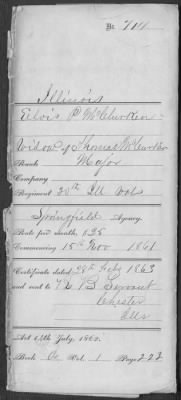 No. 714
Illinois
Elvis P. McClurken
Widow of Thomas McClurken
Rank Major
Company
Regiment 30th Ill Vols
Springfield Agency.
Rate per month, $25
Commencing 15th Nov 1861
Certificate dated 24th July 1863
and sent to N B Servant
Chester
Ills
Act 14th July, 1862.
Book C Vol. 1 Page 222